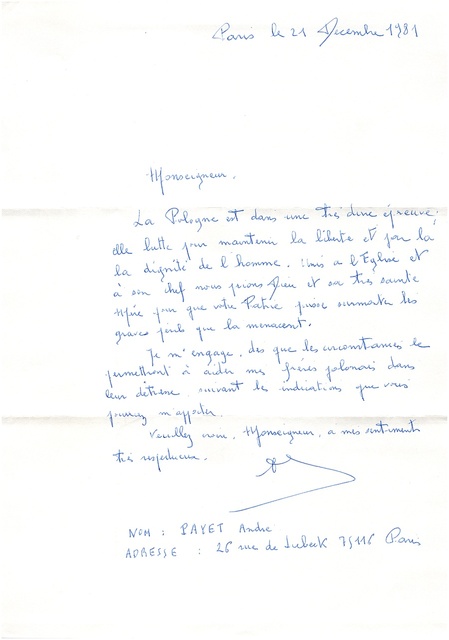 Paris le 21 Decembre 1981
Monseigneur.
La Pologne est dans une très dure épreuve,
elle lutte pour maintenir la liberté et pour la
la dignité de l'homme. Unis a l'Eglise et
à son chef nous prions Dieu et sa très sainte
Mère pour que votre Patrie puisse surmonter les
graves perils que la menacent.
Je m'engage, des que les circonstances le
permettront à aider mes frères polonais dans
leur détresse suivant les indications que vous
pourrez m'apporter.
Veuillez croire, Monseigneur, a mes sentiments
très respectueux.
NOM : PAYET Andre
ADRESSE : 26 rue de Lubeck 75116 Paris